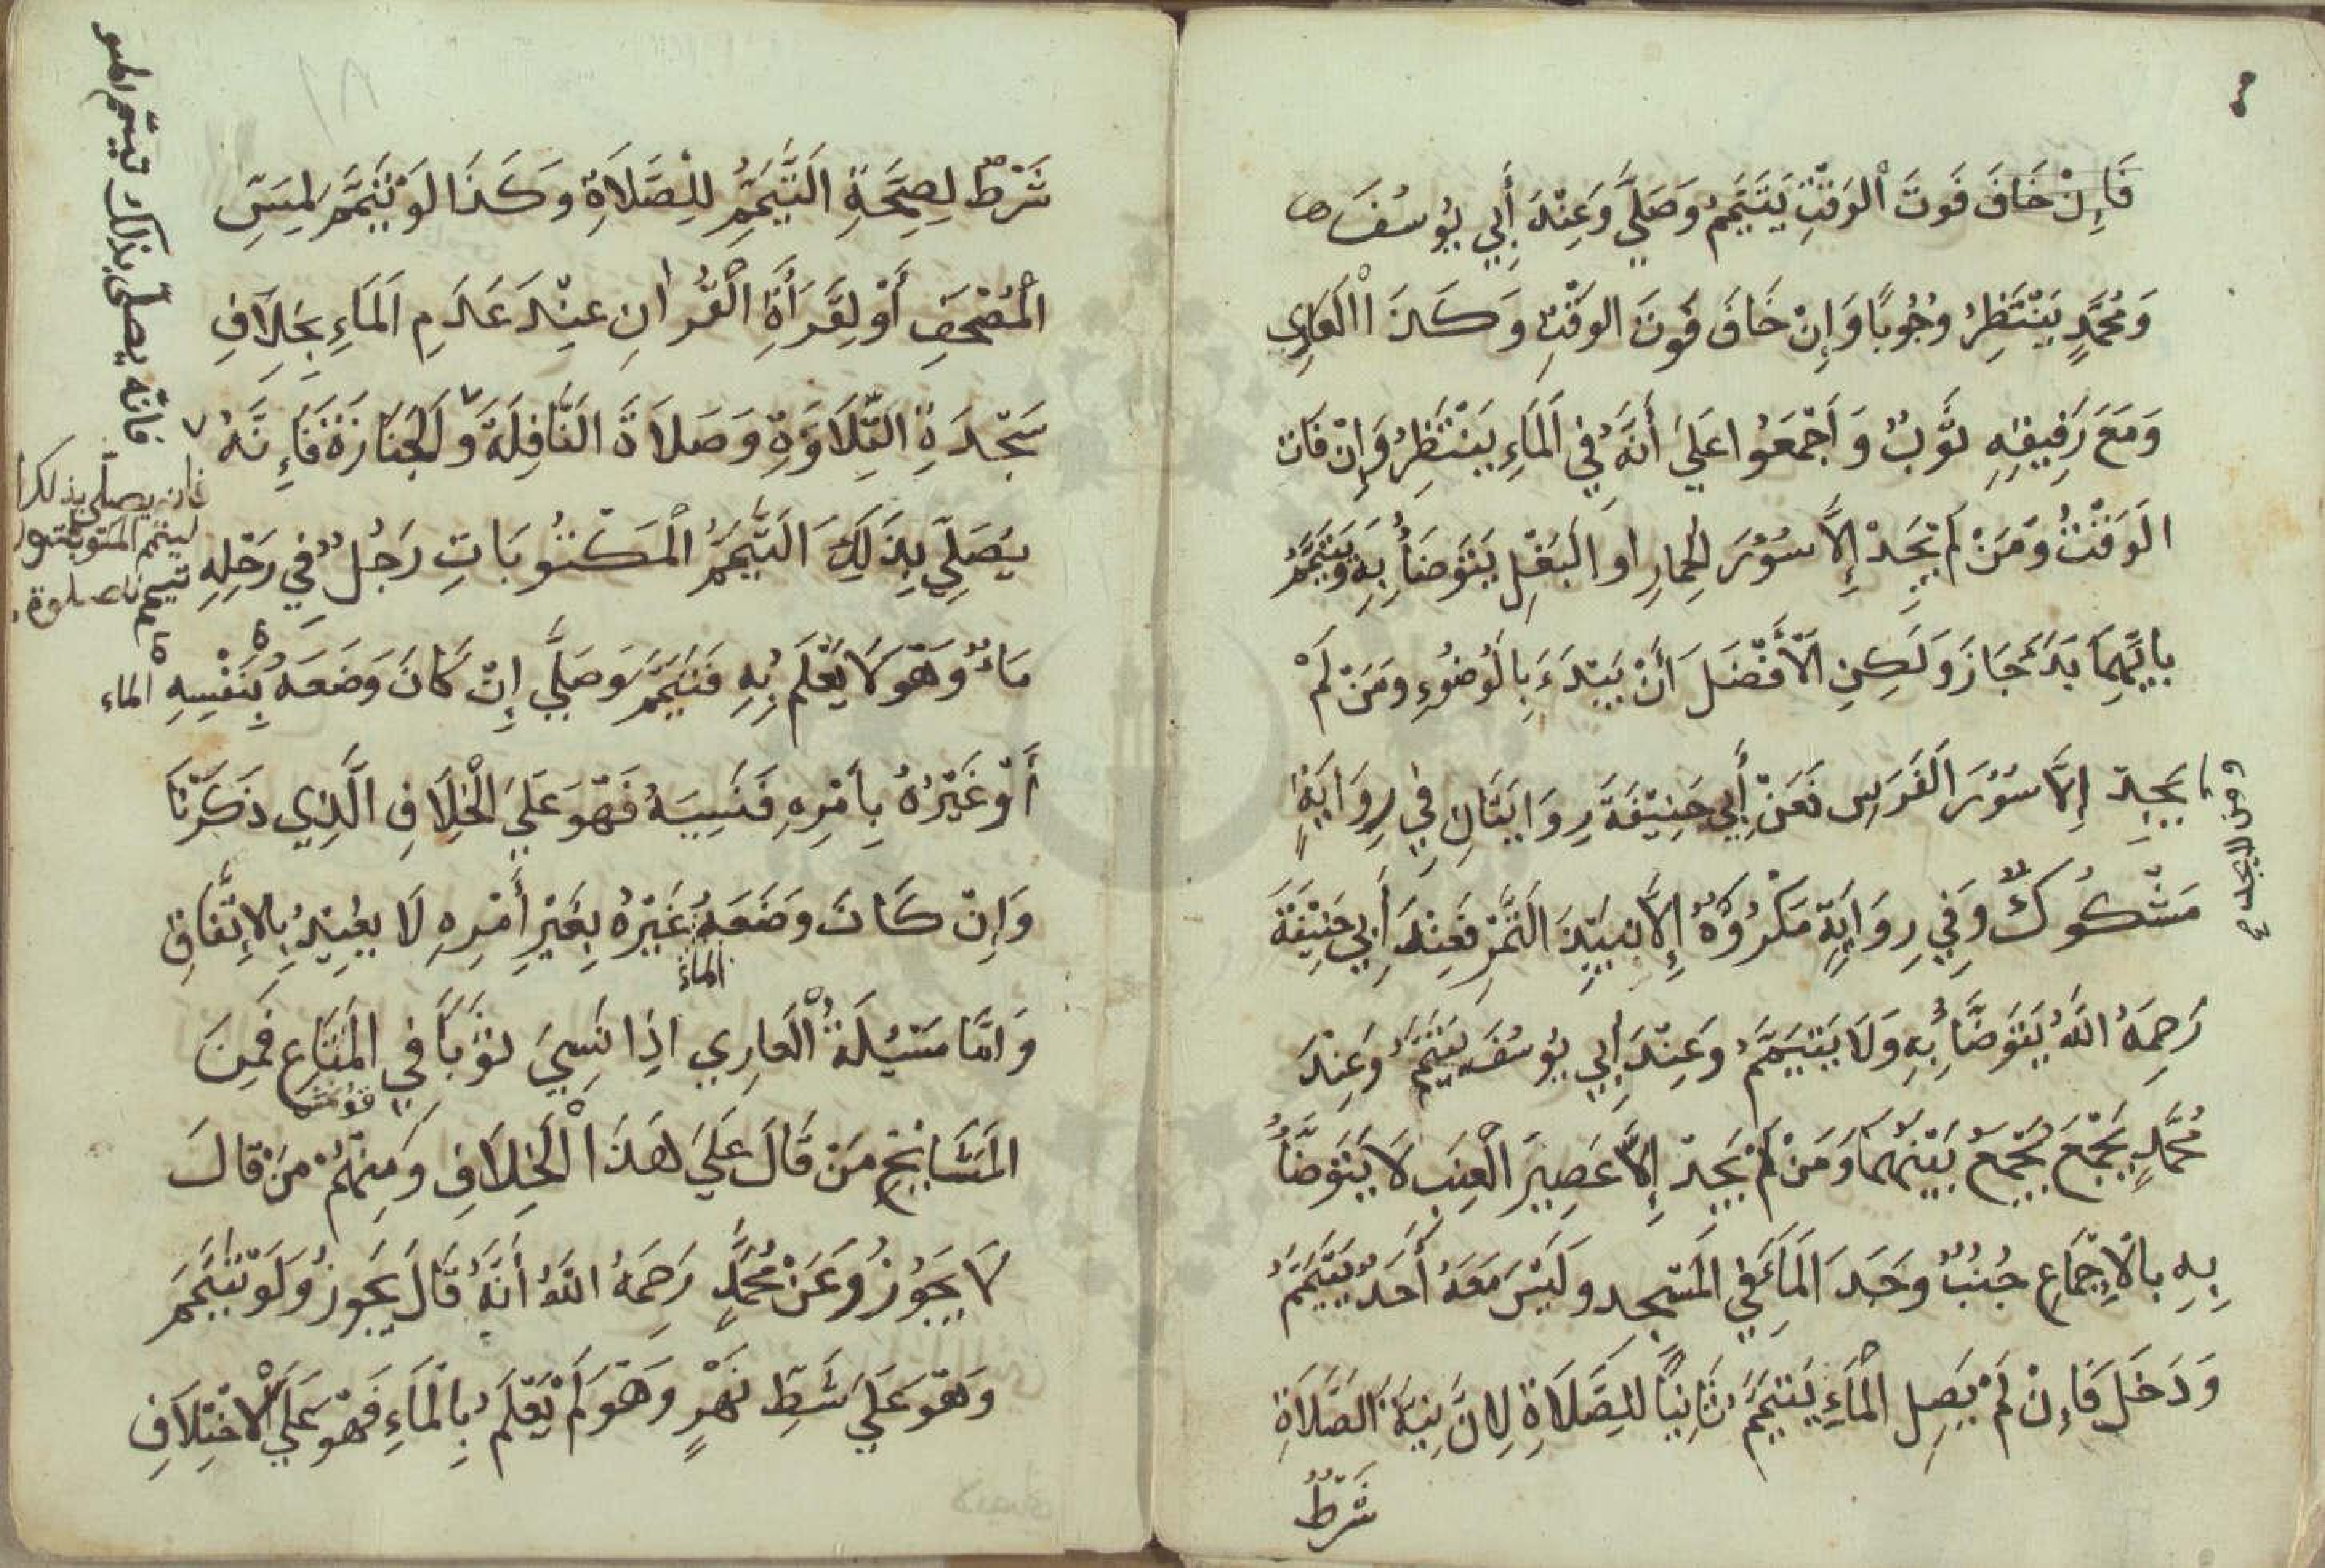 فَإِنْ خَافَ فَوتَ الْوَقْتِ يَتَيَمَّمُ وَصَلَّي وَعِنْدَ أَبِي يُوسُفَ
وَمُحَمَّدٍ يَنْتَظِرُ وُجُوبًا وَإِنْ خَافَ فَوتَ الوَقْتِ وَكَذَا الْعَارِي
وَمَعَ رَفِيقِهِ ثَوْبٌ وَاَجْمَعُوا عَلَي أَنَّهُ فِي الْمَاءِ يَنْتَظِرُ وَاِنْ فَاتَ
الوَقْتُ وَمَنْ لَمْ يَجِدْ إِلاَّ سُؤْرَ الحِمَارِ او الْبَغْلِ يَتَوَضَأُ بِهِ وَيَتَيَمَّمُ
بِايِّهِمَا بَدَأَ جَازَ وَلَكِنِ الْأَفْضَلَ أَنْ يَبْتَدَءَ بِالْوُضُوءِ وَمَنْ لَمْ
يَجِدْ إِلَّا سُؤْرَ الْفَرَسِ فَعَنْ أَبِي حَنِيْفَةَ رِوَايَتَانِ فِي رِوَايَةٍ
ومن لا يجد
مَشْكُوكٌ وَفِي رِوَايَةٍ مَكْرُوُهٌ إِلاَّ نَبِيْذَ التَّمْرِ فَعِنْدَ أَبِي حَنِيْفَةَ
رَحِمَهُ اللَّهُ يَتَوَضَّأُ بِهِ وَلَا يَتَيَمَّمُ وَعِنْدَ أَبِي يُوسُفَ يَتَيَمَّمُ وَعِنْدَ
مُحَمَّدٍ يَجْمَعُ يَجْمَعُ بَيْنَهُمَا وَمَنْ لَمْ يَجِدْ إِلاَّ عَصِيرَ الْعِنَبِ لَا يَتَوَضَّأُ
بِهِ بِالْاِجْمَاعِ جُنُبٌ وَجَدَ الْمَاءَ فِي الْمَسْجِدِ وَلَيْسَ مَعَهُ أَحَدٌ يَتَيَمَّمُ
وَدَخَلَ فَاِنْ لَمْ يَصِلِ الْمَاءِ يَتَيَمَّمُ ثَانِيًا لِلصَّلَاةِ لِانَّ نِيَّةَ الصَّلَاةِ
شَرْطٌ
شَرْطٌ لِصِحَّةِ التَّيَمُّمِ لِلْصَّلَاةِ وَكَذَا لَوْ تَيَمَّمَ لِمَسِّ
الْمُصْحَفِ أَوْ لِقَرَأَةِ الْقُرْانِ عِنْدَ عَدَمِ الْمَاءِ بِخِلَافِ
سَجْدَةِ التِّلَاوَةِ وَصَلَاةَ النَّافِلَةِ وَالْجَنَازَةَ فَإِنَّهُ
يُصَلِّي بِذَلِكَ التَّيَمُّمِ الْمَكْتُوبَاتِ رَجُلٌ فِي رَحْلِهِ
فانّه يصلّى بذلك
تيمم للصلوة
مَاءٌ وَهُوَ لَا يَعْلَمُ بِهِ فَتَيَمَّمَ وَصَلَّي إِنْ كَانَ وَضَعَهُ بِنَفْسِهِ الماء
أَوْ غَيْرُهُ بِاَمْرِهِ فَنَسِيَهُ فَهُوَ عَلَي الْخِلَافِ الَّذِي ذَكَرْنَا
وَاِنْ كَانَ وَضَعَهُ غَيْرُهُ بِغَيْرِ أَمْرِهِ لَا يُعِيْدُ بِالاِتِّفَاقِ
الماء
وَامَّا مَسْئِلَةُ الْعَارِي اذِا نَسِيَ ثَوْبًا فِي الْمَتَاعِ فَمِنَ
الْمَشَايِخِ مَنْ قَالَ عَلَي هَذَا الْخِلَافِ وَمِنْهُمْ مَنْ قَالَ
لَا يَجُوْزُ وَعَنْ مُحَمَّدٍ رَحِمَهُ اللَّهُ أَنَّهُ قَالَ يَجُوزُ وَلَوْ تَيَمَّمَ
وَهُوَ عَلَي شَطِّ نَهْرٍ وَهُوَ لَمْ يَعْلَمْ بِالْمَاءِ فَهُوَ عَلَي الْاخْتِلَافِ